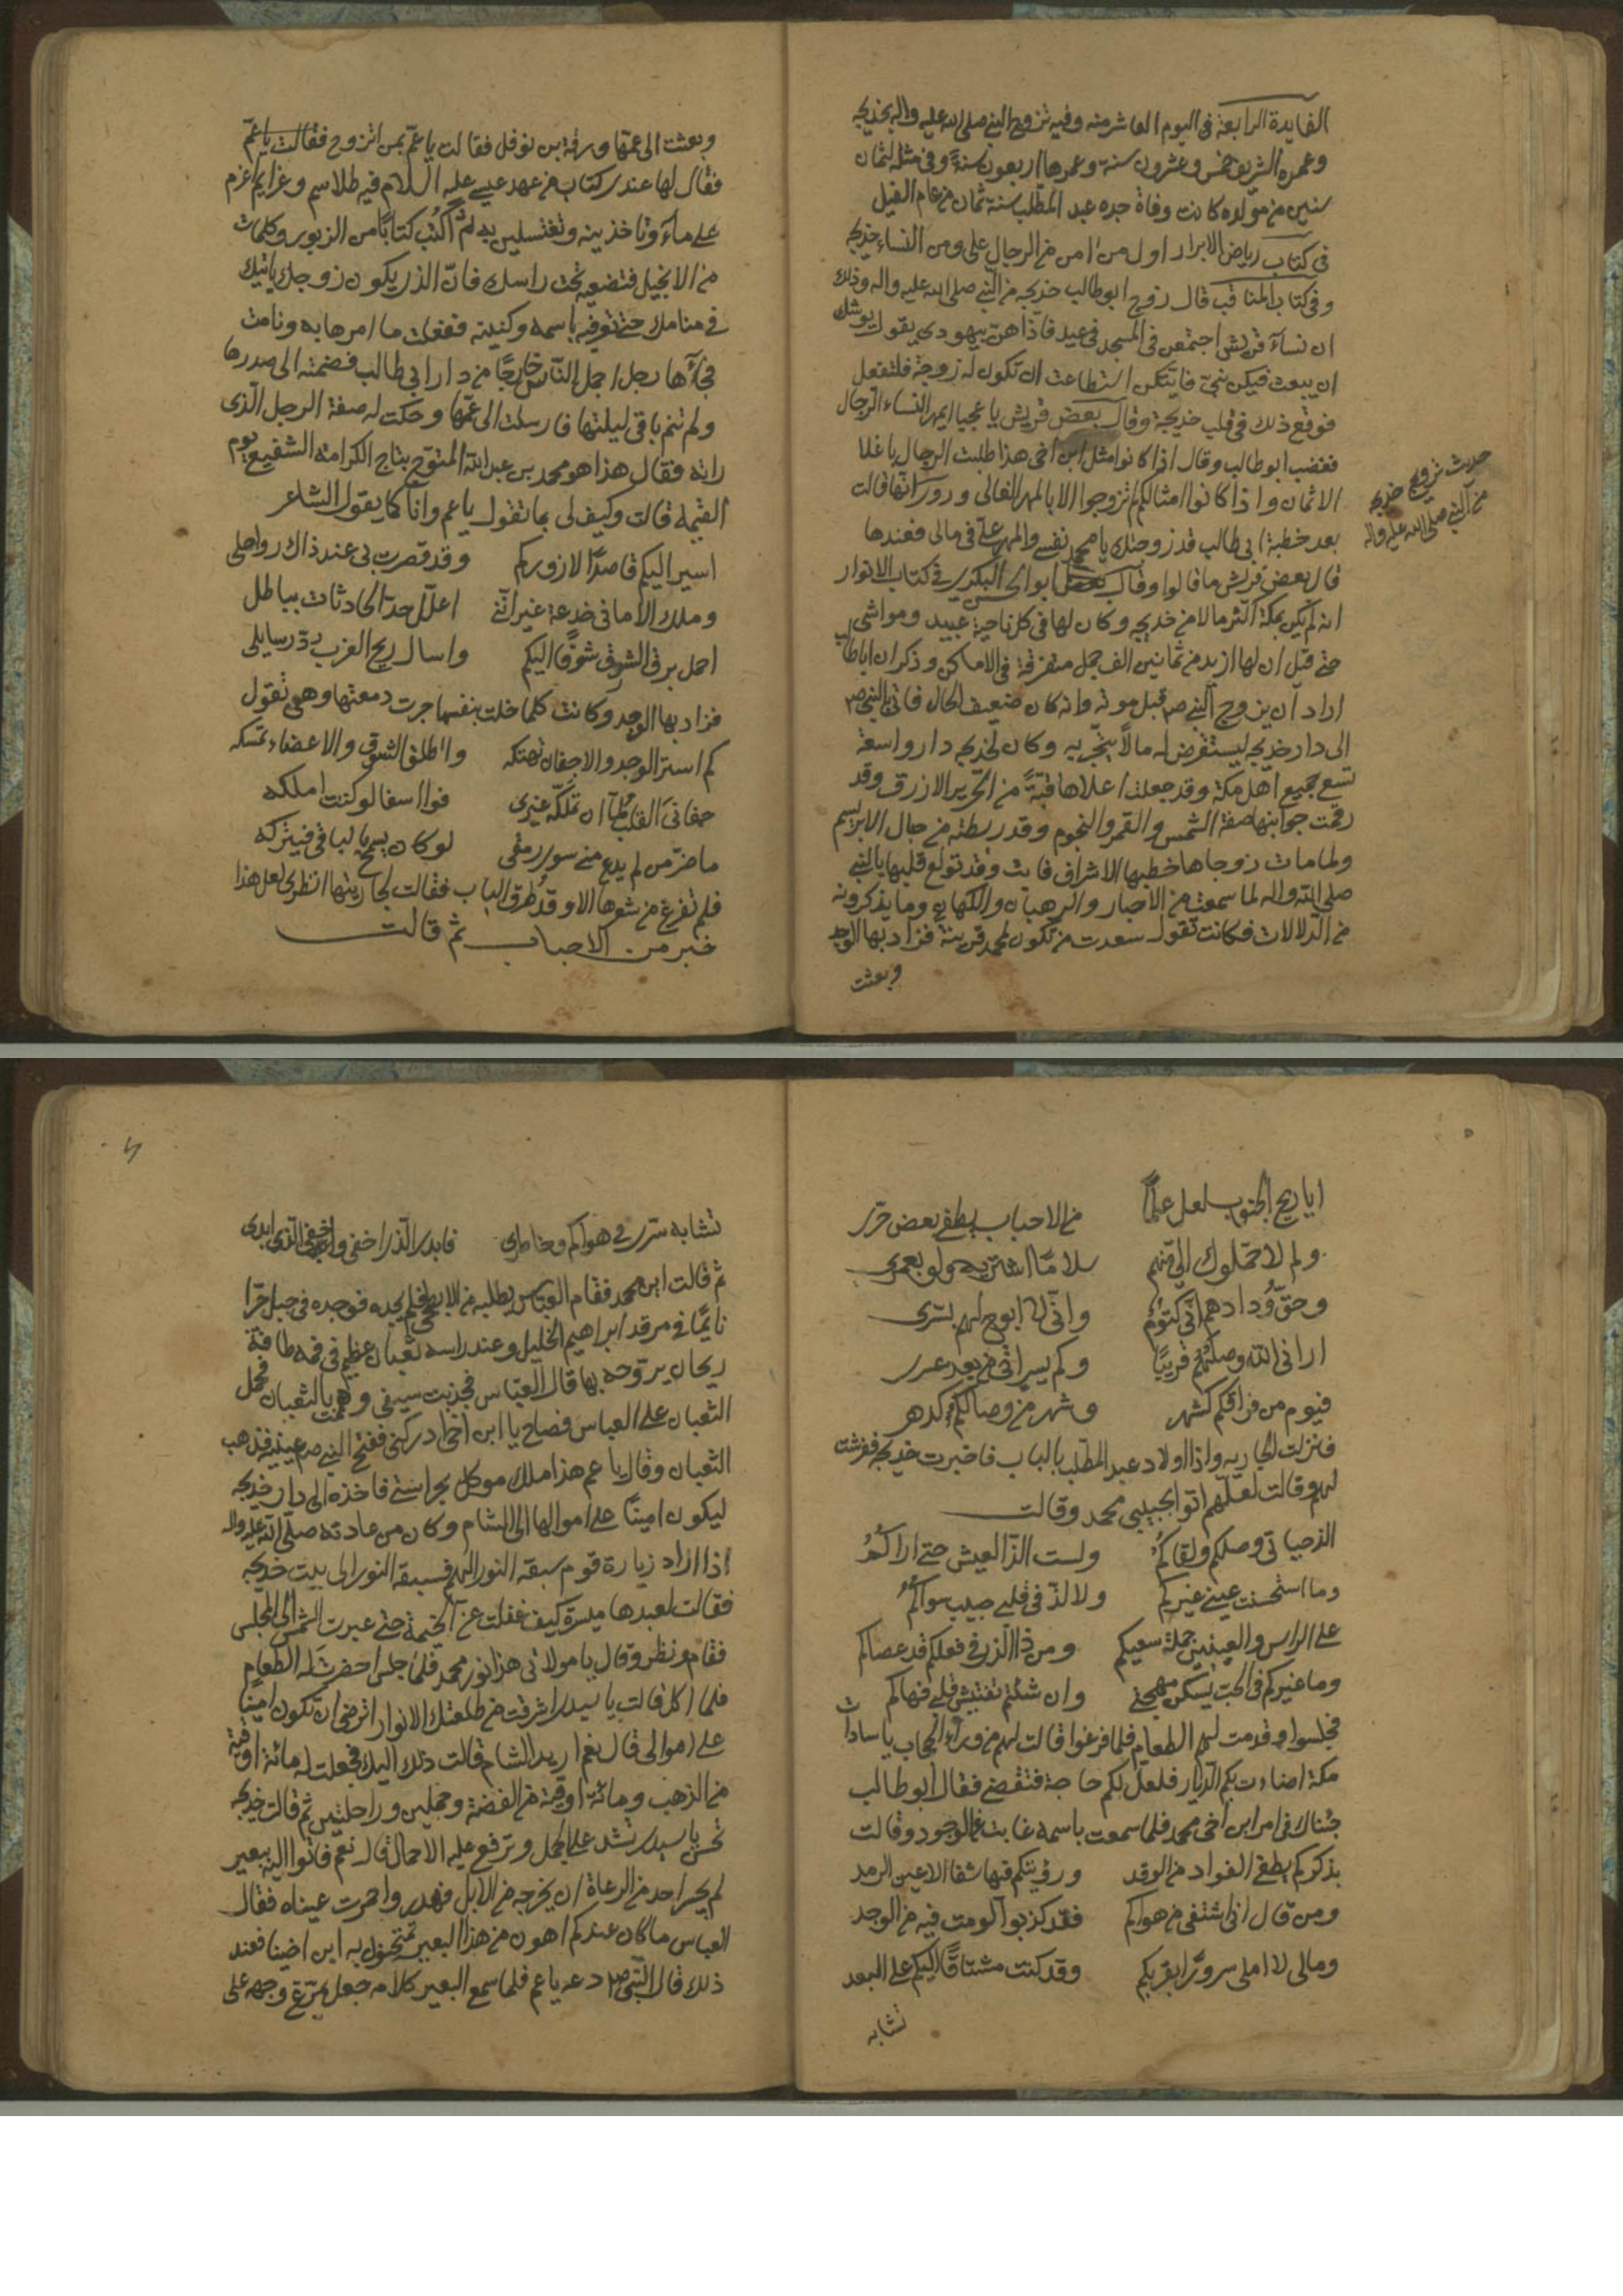 الفايدة الرابعة في اليوم العاشر منه وفيه تزوج النبي صلى الله عليه واله بخديجة
وعمره الشريف خمس وعشرون سنة وعمرها اربعون سنة وفي مثله لثمان
سنين من مولده كانت وفاة جده عبد المطلب سنة ثمان من عام الفيل
في كتاب رياض الابرار اول من امن من الرجال علي ومن النساء خديجه
وفي كتاب المناقب قال زوج ابو طالب خديجه من النبي صلى الله عليه واله وذلك
ان نساء قريش اجتمعن في المسجد في عيد فاذا هن بيهودي يقول يوشك
ان يبعث فيكن نبي فايتكن استطاعت ان تكون له زوجة فلتفعل
فوقع ذلك في قلب خديجة وقال بعض قريش يا عجبا ايمهر النساء الرجال
فغضب ابو طالب وقال اذا كانوا مثل ابن اخي هذا طلبت الرجال باغلا
الاثمان واذا كانوا امثالكم لم تزوجوا الا بالمهر الغالى وروى انها قالت
بعد خطبة ابي طالب قد زوجتك يا محمد نفسي والمهر علي في مالي فعندها
قال بعض قريش ما قالوا وقال ابو الحسن البكري في كتاب الانوار
انه لم يكن بمكة اكثر مالا من خديجه وكان لها في كل ناحية عبيد ومواشي
حتى قيل ان لها ازيد من ثمانين الف جمل متفرقة في الاماكن وذكر ان ابا طالب
اراد ان يزوج النبي ص قبل موته وانه كان ضعيف الحال فاتى النبي ص
الى دار خديجه ليستقرض له مالا يتجر به وكان لخديجه دار واسعة
تسع جميع اهل مكة وقد جعلت اعلاها قبة من الحرير الازرق وقد
رقمت جوانبها صفة الشمس والقمر والنجوم وقد ربطته من حبال الابريسم
ولما مات زوجاها خطبها الاشراف فابت وقد تولع قلبها بالنبي
صلى الله واله لما سمعت من الاحبار والرهبان والكهان وما يذكرونه
من الدلالات فكانت تقول سعدت من تكون لمحمد قرينة فزاد بها الوجد
وبعثت
حديث تزويج خديجه
من النبي صلى الله عليه واله
وبعثت الى عمها ورقة بن نوفل فقالت يا عم بمن اتزوج فقالت يا عم
فقال لها عندي كتاب من عهد عيسى عليه السلام فيه طلاسم وعزايم اعزم
على ماء وتاخذينه وتغتسلين به ثم اكتب كتابا من الزبور وكلمات
من الانجيل فتضعيه تحت راسك فان الذي يكون زوجك ياتيك
في منامك حتى تعرفيه باسمه وكنيته ففعلت ما امرها به ونامت
فجاءها رجل اجمل الناس خارجا من دار ابي طالب فضمته الى صدرها
ولم تنم باقي ليلتها فارسلت الى عمها وحكت له صفة الرجل الذي
راته فقال هذا هو محمد بن عبد الله المتوج بتاج الكرامة الشفيع يوم
القيمة قالت وكيف لي بما تقول يا عم وانا كما يقول الشاعر
اسير اليكم قاصدا لازوركم وقد قصرت بي عند ذاك رواحلي
وملك الاماني خدعة غير انني اعلل حد الحادثات بباطل
احمل برق الشرق شوقا اليكم واسال ريح الغرب رد رسايلي
فزاد بها الوجد وكانت كلما خلت بنفسها جرت دمعتها وهي تقول
كم استر الوجد والاجفان تهتكه واطلق الشوق والاعضاء تمسكه
جفاني القلب لما ان تملكه غيري فوا اسفا لو كنت املكه
ما ضر من لم يدع مني سوى رمقي لو كان يسمح بالباقي فيتركه
فلم تفرغ من شعرها الا وقد طرق الباب فقالت لجاريتها انظري لعل هذا
خبر من الاحباب ثم قالت
ايا ريح الجنوب لعل علما من الاحباب يطفي بعض حري
ولم لا حملوك الي منهم سلاما اشتريه ولو بعمري
وحق ودادهم اني كتوم واني لا ابوح لهم بسري
اراني الله وصلهم قريبا وكم يسر اتى من بعد عسر
فيوم من فراقكم كشهر وشهر من وصالكم كدهر
فنزلت الجاريه واذا اولاد عبد المطلب بالباب فاخبرت خديجه ففرشت
لهم وقالت لعلهم اتوا بحبيبي محمد وقالت
الذ حياتي وصلكم ولقاكم ولست الذ العيش حتى اراكم
وما استحسنت عيني غيركم ولا لذ في قلبي حبيب سواكم
على الراس والعينين جملة سعيكم ومن ذا الذي في فعلكم قد عصاكم
وما غيركم في الحب يسكن مهجتي وان شئتم تفتيش قلبي فهاكم
فجلسوا وقدمت لهم الطعام فلما فرغوا قالت لهم من وراء الحجاب يا سادات
مكة اضاءت بكم الديار فلعل بكم حاجة فتقضى فقال ابو طالب
جئناك في امر ابن اخي محمد فلما سمعت باسمه غابت عن الوجود وقالت
بذكركم يطفي الفواد من الوقد ورؤيتكم فيها شفا الاعين الرمد
ومن قال اني اشتفي من هواكم فقد كذبوا لو مت فيه من الوجد
ومالي لا املى سرورا بقربكم وقد كنت مشتاقا اليكم على البعد
تشابه
تشابه سري في هواكم وخاطري فابدي الذي اخفي واخفي الذي ابدي
ثم قالت اين محمد فقام العباس يطلبه من الابطح فلم يجده فوجده في جبل حرا
نايما في مرقد ابراهيم الخليل وعند راسه ثعبان عظيم في فمه طاقة
ريحان يروحه بها قال العباس فجذبت سيفي وهممت بالثعبان فحمل
الثعبان على العباس فصاح يا ابن اخي ادركني ففتح النبي ص عينيه فذهب
الثعبان وقال يا عم هذا ملك موكل بحراستي فاخذه الى دار خديجه
ليكون امينا على اموالها الى الشام وكان من عادته صلى الله عليه واله
اذا اراد زيارة قوم سبقه النور اليهم فسبقه النور الى بيت خديجه
فقالت لعبدها ميسرة كيف غفلت عن الخيمة حتى عبرت الشمس الى المجلس
فقام ونظر وقال يا مولاتي هذا نور محمد فلما جلس احضرت له الطعام
فلما اكل قالت يا سيدي اشرقت من طلعتك الانوار اترضى ان تكون امينا
على اموالي قال نعم اريد الشام قالت ذلك اليك فجعلت له مائة اوقية
من الذهب ومائة اوقية من الفضة وجملين وراحلتين ثم قالت خديجه
تحسن يا سيدي تشد على الجمل وترفع عليه الاحمال قال نعم فاتوا اليه ببعير
لم يجسر احد من الرعاة ان يخرجه من الابل فهدر واحمرت عيناه فقال
العباس ما كان عندكم اهون من هذا البعير به ابن اخينا فعند
ذلك قال النبي ص دعه يا عم فلما سمع البعير كلامه جعل يمرغ وجهه على